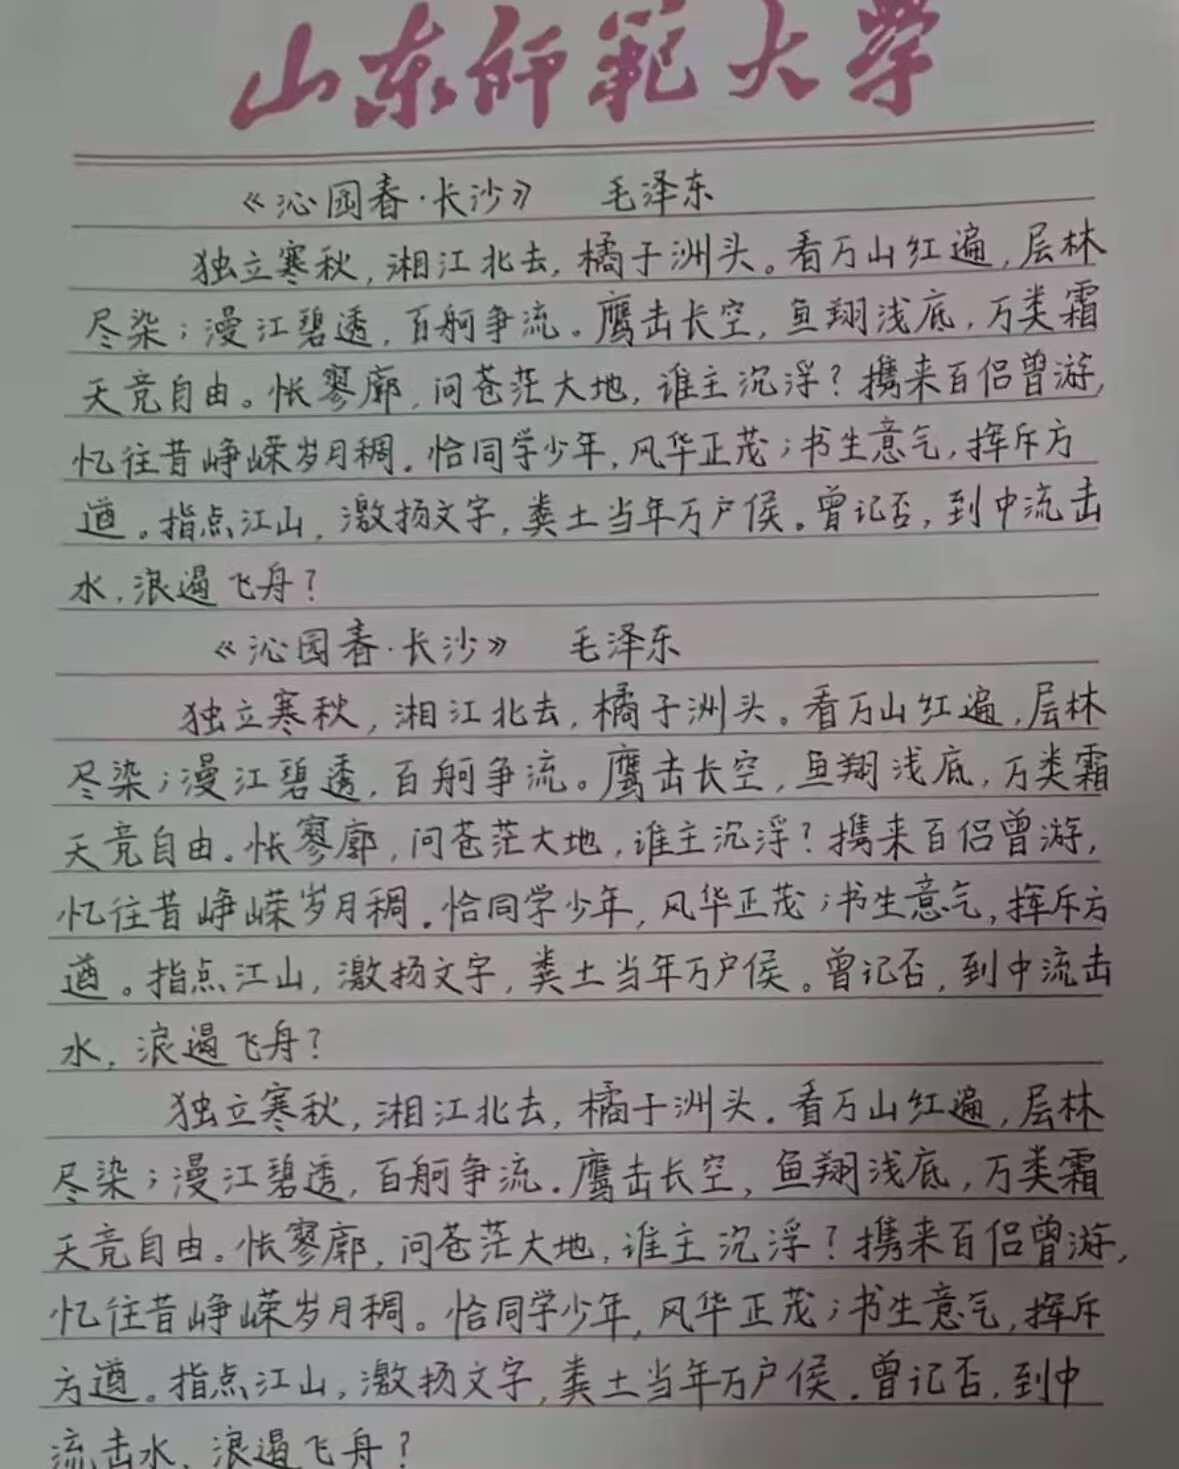 山东师范大学
《沁园春·长沙》 毛泽东
独立寒秋,湘江北去,橘子洲头。看万山红遍,层林
尽染;漫江碧透,百舸争流。鹰击长空,鱼翔浅底,万类霜
天竞自由。怅寥廓,问苍茫大地,谁主沉浮?携来百侣曾游,
忆往昔峥嵘岁月稠。恰同学少年,风华正茂;书生意气,挥斥方
遒。指点江山,激扬文字,粪土当年万户侯。曾记否,到中流击
水,浪遏飞舟?
《沁园春·长沙》 毛泽东
独立寒秋,湘江北去,橘子洲头。看万山红遍,层林
尽染;漫江碧透,百舸争流。鹰击长空,鱼翔浅底,万类霜
天竞自由。怅寥廓,问苍茫大地,谁主沉浮?携来百侣曾游,
忆往昔峥嵘岁月稠。恰同学少年,风华正茂;书生意气,挥斥方
遒。指点江山,激扬文字,粪土当年万户侯。曾记否,到中流击
水,浪遏飞舟?
独立寒秋,湘江北去,橘子洲头。看万山红遍,层林
尽染;漫江碧透,百舸争流。鹰击长空,鱼翔浅底,万类霜
天竞自由。怅寥廓,问苍茫大地,谁主沉浮?携来百侣曾游,
忆往昔峥嵘岁月稠。恰同学少年,风华正茂;书生意气,挥斥
方遒。指点江山,激扬文字,粪土当年万户侯。曾记否,到中
流击水,浪遏飞舟?